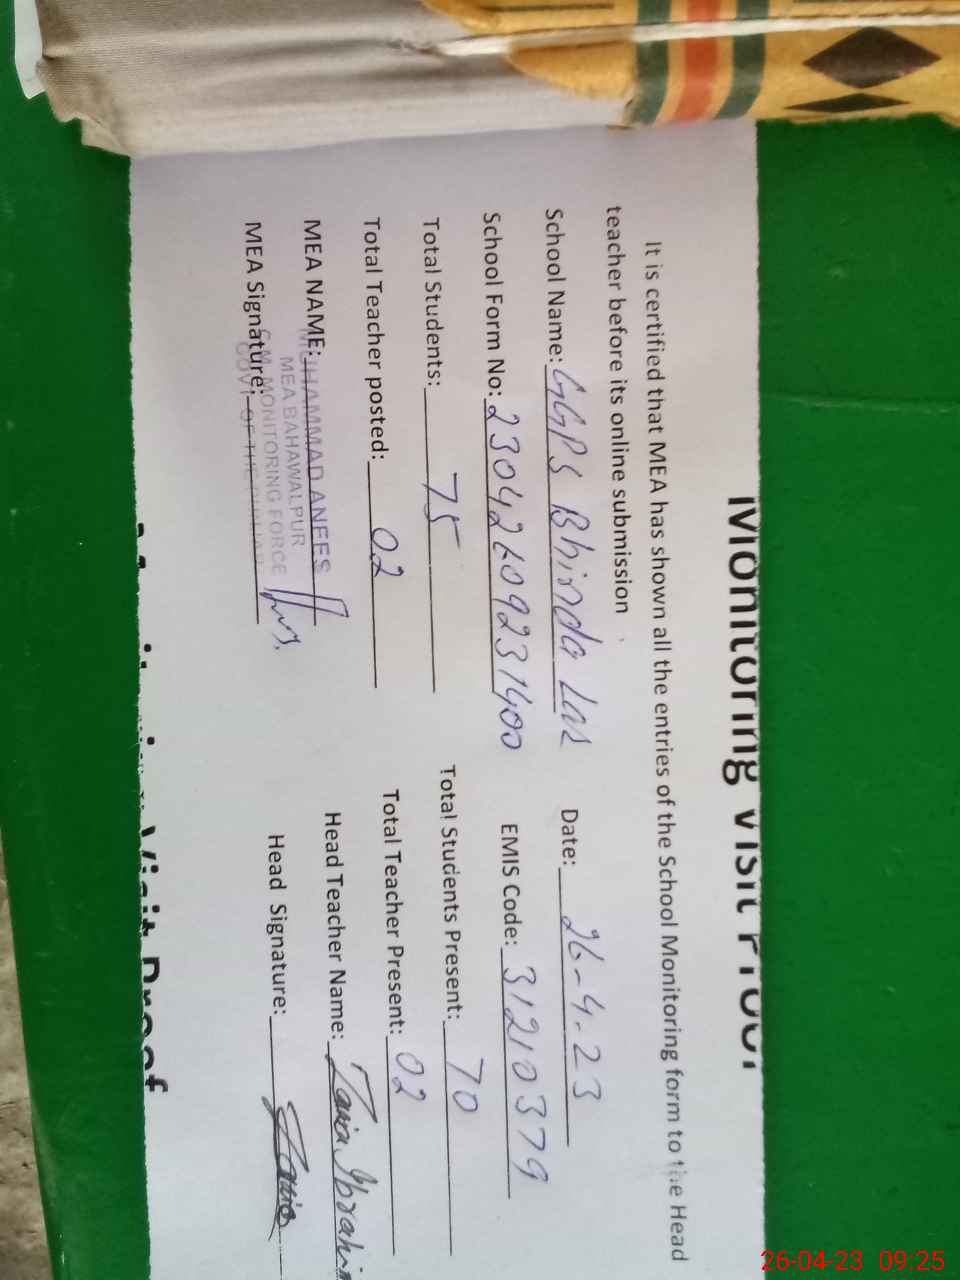 Monitoring Visit Proof
It is certified that MEA has shown all the entries of the School Monitoring form to the Head
teacher before its online submission
School Name: GGPS Bhinda Las Date: 26-4-23
School Form No: 23042609231400 EMIS Code: 31210379
Total Students: 75 Total Students Present: 70
Total Teacher posted: 02 Total Teacher Present: 02
MEA NAME: MUHAMMAD ANEES Head Teacher Name: Zania Ibrahim
MEA BAHAWALPUR
MEA Signature: MONITORING FORCE Head Signature:
GOVT OF THE PUNJAB
Visit Proof
26-04-23 09:25